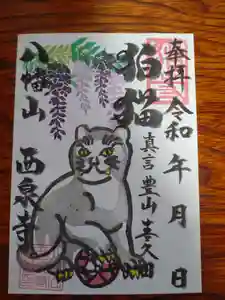 奉拝
令和 年 月 日
真言 豊山 喜久
猫
八幡山
西泉寺